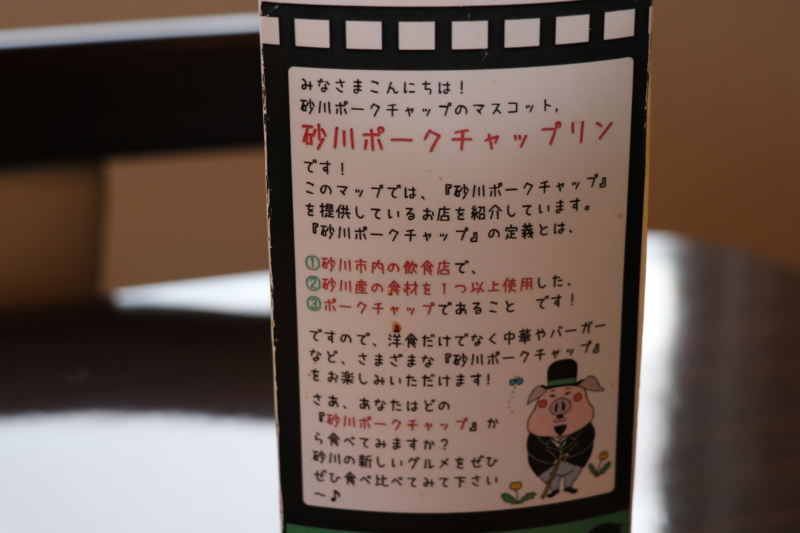 みなさまこんにちは！
砂川ポークチャップのマスコット、
砂川ポークチャップリン
です！
このマップでは、『砂川ポークチャップ』
を提供しているお店を紹介しています。
『砂川ポークチャップ』の定義とは、
①砂川市内の飲食店で、
②砂川産の食材を１つ以上使用した、
③ポークチャップであること　です！
ですので、洋食だけでなく中華やバーガー
など、さまざまな『砂川ポークチャップ』
をお楽しみいただけます！
さあ、あなたはどの
『砂川ポークチャップ』か
ら食べてみますか？
砂川の新しいグルメをぜひ
ぜひ食べ比べてみて下さい
～♪